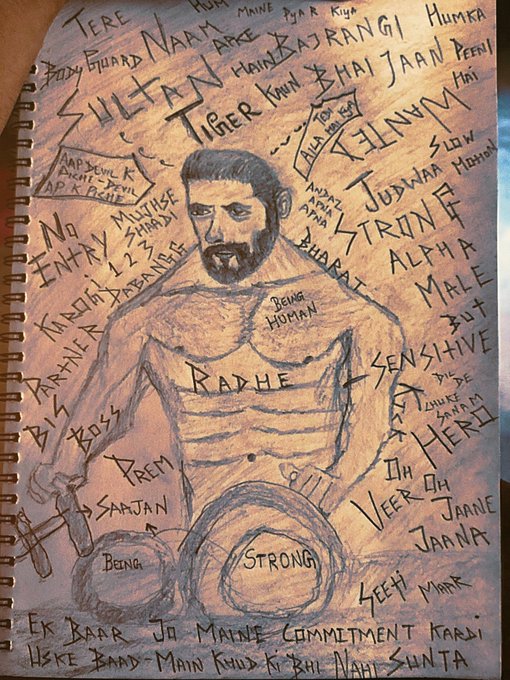 TERE
NAAM
HUM
AAPKE
HAIN
KAUN
MAINE PYAR KIYA
BODYGUARD
SULTAN
TIGER
BAJRANGI
BHAIJAAN
HUMKA
PEENI
HAI
WANTED
SLOW
MOTION
AAP DEVIL K
AICHE-DEVIL
AP. K PICHE
MUJHSE
SHAADI
NO
ENTRY
123
DABANGG
KAROGI
PARTNER
BIG BOSS
ANDAZ
APNA
APNA
JUDWAA
STRONG
ALPHA
MALE
BUT
SENSITIVE
BHARAT
BEING
HUMAN
RADHE
KICK
DIL DE
CHUKE
SANAM
HERO
PREM
SAAJAN
VEER
OH
OH
JAANE
JAANA
BEING
STRONG
SEETI MAAR
EK BAAR JO MAINE COMMITMENT KARDI
USKE BAAD-MAIN KHUD KI BHI NAHI SUNTA